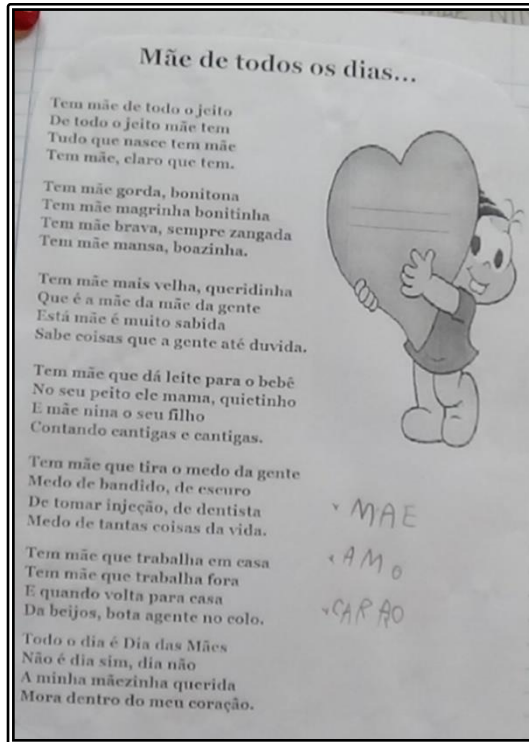 Mãe de todos os dias...
Tem mãe de todo o jeito
De todo o jeito mãe tem
Tudo que nasce tem mãe
Tem mãe, claro que tem.
Tem mãe gorda, bonitona
Tem mãe magrinha bonitinha
Tem mãe brava, sempre zangada
Tem mãe mansa, boazinha.
Tem mãe mais velha, queridinha
Que é a mãe da mãe da gente
Está mãe é muito sabida
Sabe coisas que a gente até duvida.
Tem mãe que dá leite para o bebê
No seu peito ele mama, quietinho
E mãe nina o seu filho
Contando cantigas e cantigas.
Tem mãe que tira o medo da gente
Medo de bandido, de escuro
De tomar injeção, de dentista
Medo de tantas coisas da vida.
Tem mãe que trabalha em casa
Tem mãe que trabalha fora
E quando volta para casa
Da beijos, bota agente no colo.
Todo o dia é Dia das Mães
Não é dia sim, dia não
A minha mãezinha querida
Mora dentro do meu coração.
MAE
AMO
CARAO